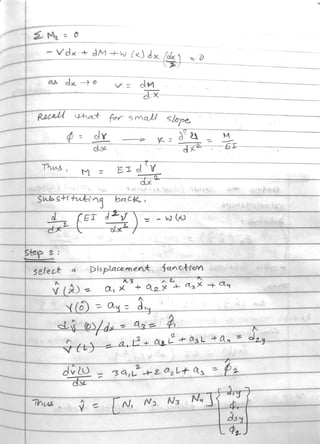 Σ M₂ = 0
- Vdx + dM + w(x) dx (dx/2) = 0
as dx → 0 V = dM/dx
Recall that for small slope
φ = dv/dx → K = d²v/dx² = M/EI
Thus, M = EI d²v/dx²
Substituting back.
d/dx² (EI d²v/dx²) = - w(x)
Step 2:
select a Displacement function
v̂(x̂) = a₁x̂³ + a₂x̂² + a₃x̂ + a₄
v̂(0) = a₄ = d̂₁y
dv̂(0)/dx = a₃ = φ̂₁
v̂(L) = a₁L³ + a₂L² + a₃L + a₄ = d̂₂y
dv̂(L)/dx = 3a₁L² + 2a₂L + a₃ = φ̂₂
Thus v̂ = [N₁ N₂ N₃ N₄] { d̂₁y
φ̂₁
d̂₂y
φ̂₂ }